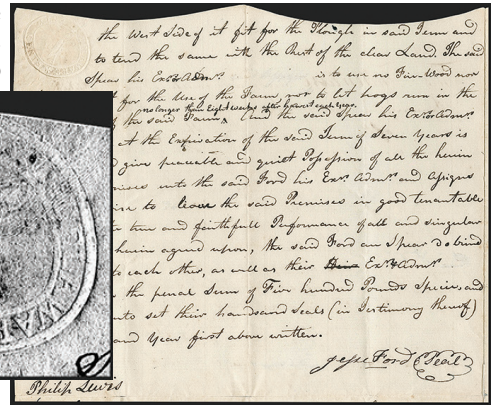 the West Side of it fit for the Plough in said Term and
to tend the same with the Rest of the clear Land The said
Spear his Exrs. Admrs. is to use no Fire Wood nor
for the Use of the Farm, nor to let hogs run in the
no longer than Eight weeks after harvest each year.
of the said Farm, And the said Spear his Exrs. Admrs.
At the Expiration of the said Term of Seven Years is
give peaceable and quiet Possession of all the herein
unto the said Ford his Exrs. Admrs. and Assigns
to leave the said Premises in good tenantable
true and faithfull Performance of all and singular
herein agreed upon, the said Ford an Spear do bind
to each other, as well as their Exrs. & Admrs.
the penal Sum of Five hundred Pounds Specie, and
set their hands and Seals (in Testimony thereof)
and Year first above written.
Jesse Ford Seal
WAR
Philip Lewis